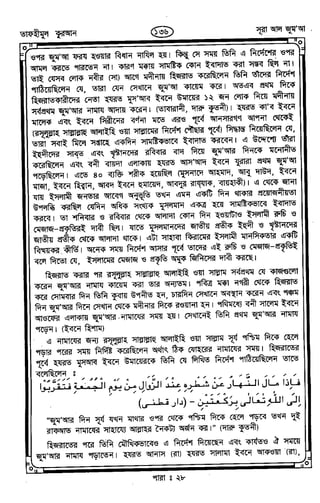 তাফহীমুল কুরআন
১৩৬
সূরা আল জুম'আ
ওপর জুম'আ ফরয হওয়ার বিধান নাযিল হয়। কিন্তু সে সময় তিনি এ নির্দেশের ওপর
আমল করতে পারতেন না। কারণ মক্কায় সামষ্টিক কোন ইবাদাত করা সম্ভব ছিল না।
তাই যেসব লোক নবীর (সা) আগে মদীনায় হিজরাত করেছিলেন তিনি তাঁদের নির্দেশ
পাঠিয়েছিলেন যে, তারা যেন সেখানে জুম'আ কায়েম করে। অতএব প্রথম দিকে
হিজরাতকারীদের নেতা হযরত মুস'আব ইবনে উমায়ের ১২ জন লোক নিয়ে মদীনায়
সর্বপ্রথম জুম'আর নামায আদায় করেন। (তাবারানী, দারু কুতনী)। হযরত কা'ব ইবনে
মালেক এবং ইবনে সিরীনের বর্ণনা মতে এরও পূর্বে আনসারগণ আপনা থেকেই
(রসূলুল্লাহ সাল্লাল্লাহু আলাইহি ওয়া সাল্লামের নির্দেশ পৌছার পূর্বে) সিদ্ধান্ত নিয়েছিলেন যে,
তারা সবাই মিলে সপ্তাহে একদিন সামষ্টিকভাবে ইবাদাত করবেন। এ উদ্দেশ্যে তাঁরা
ইহুদীদের সাবত এবং খৃস্টানদের রবিবার বাদ দিয়ে জুম'আর দিনকে মনোনীত
করেছিলেন এবং বনী বায়াদা এলাকায় হযরত আস'আদ ইবনে যুরারা প্রথম জুম'আ
পড়েছিলেন। এতে ৪০ ব্যক্তি শরীক হয়েছিল (মুসনাদে আহমাদ, আবু দাউদ, ইবনে
মাজা, ইবনে হিব্বান, আবদ ইবনে হুমায়েদ, আবদুর রাযযাক, বায়হাকী)। এ থেকে জানা
যায় ইসলামী জনতার আবেগ অনুভূতি তখন এমন একটি দিন থাকার প্রয়োজনীয়তা
উপলব্ধি করছিল যেদিন অধিক সংখ্যক মুসলমান একত্র হয়ে সামষ্টিকভাবে ইবাদাত
করবে। তা শনিবার ও রবিবার থেকে আলাদা কোন দিন হওয়াটাও ইসলামী রুচি ও
মেজাজ-প্রকৃতিরই দাবী ছিল। যাতে মুসলমানদের জাতীয় প্রতীক ইহুদী ও খৃস্টানদের
জাতীয় প্রতীক থেকে আলাদা থাকে। এটা সাহাবা কিরামের ইসলামী মানসিকতার একটি
বিস্ময়কর কীর্তি। অনেক সময় নির্দেশ আসার পূর্বে তাদের এই রুচি ও মেজাজ-প্রকৃতিই
বলে দিতো যে, ইসলামের মেজাজ ও প্রকৃতি অমুক জিনিসের দাবী করছে।
হিজরাত করার পর রসূলুল্লাহ সাল্লাল্লাহু আলাইহি ওয়া সাল্লাম সর্বপ্রথম যে কাজগুলো
করেন জুম'আর নামায কায়েম করা তার অন্যতম। পবিত্র মক্কা নগরী থেকে হিজরাত
করে সোমবার দিন তিনি কুবায় উপনীত হন, চারদিন সেখানে অবস্থান করেন এবং পঞ্চম
দিন জুম'আর দিনে সেখান থেকে মদীনার দিকে রওয়ানা হন। পথিমধ্যে বনী সালেম ইবনে
আওফের এলাকায় জুম'আর নামাযের সময় হয়। সেখানেই তিনি প্রথম জুম'আর নামায
পড়েন। (ইবনে হিশাম)
এ নামাযের জন্য রসূলুল্লাহ সাল্লাল্লাহু আলাইহি ওয়া সাল্লাম সূর্য পশ্চিম দিকে হেলে
পড়ার পরের সময় নির্দিষ্ট করেছিলেন অর্থাৎ ঠিক যোহরের নামাযের সময়। হিজরাতের
পূর্বে হযরত মুসআব ইবনে উমায়েরকে তিনি যে লিখিত নির্দেশ পাঠিয়েছিলেন তাতে
বলেছিলেন :
فَإِذَا مَالَ النَّهَارُ عَنْ شَطْرِهِ عِنْدَ الزَّوَالِ مِنْ يَوْمِ الْجُمُعَةِ فَتَقَرَّبُوْا
إِلَى اللّٰهِ تَعَالٰى بِرَكْعَتَيْنِ – (دار قطنى)
"জুম'আর দিন সূর্য যখন মাথার ওপর থেকে পশ্চিম দিকে হেলে পড়বে তখন দুই
রাকআত নামাযের সাহায্যে আল্লাহর নৈকট্য অর্জন কর।" (দারু কুতনী)
হিজরাতের পরে তিনি মৌখিকভাবেও এ নির্দেশ দিয়েছেন এবং কার্যতও ঐ সময়ে
জুম'আর নামায পড়াতেন। হযরত আনাস (রা) হযরত সালামা ইবনে আকওয়া (রা),
পারা : ২৮